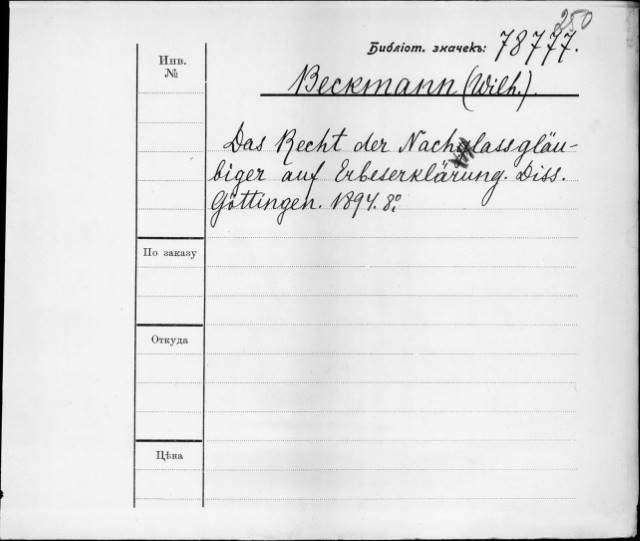 250
Библіот. значекъ: 78777.
Инв.
№
Beckmann (Wilh.).
Das Recht der Nachlassgläu-
biger auf Erbeserklärung. Diss.
Göttingen. 1894. 8º.
По заказу
Откуда
Цѣна